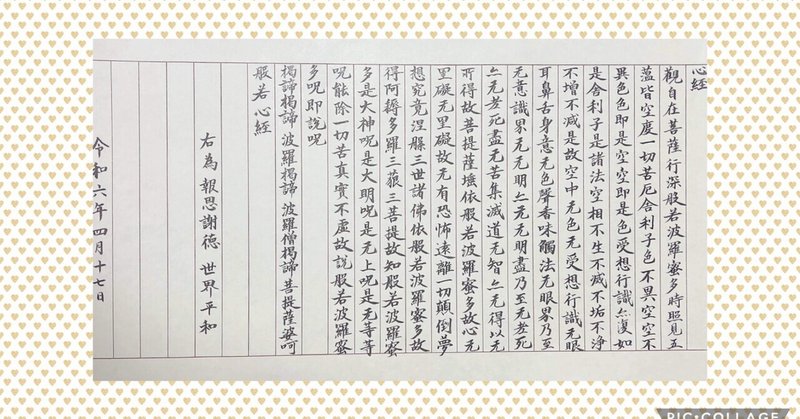 心経
觀自在菩薩行深般若波羅蜜多時照見五
蘊皆空度一切苦厄舍利子色不異空空不
異色色即是空空即是色受想行識亦復如
是舍利子是諸法空相不生不滅不垢不浄
不增不減是故空中无色无受想行識无眼
耳鼻舌身意无色聲香味觸法无眼界乃至
无意識界无无明亦无无明盡乃至无老死
亦无老死盡无苦集滅道无智亦无得以无
所得故菩提薩埵依般若波羅蜜多故心无
罣礙无罣礙故无有恐怖遠離一切顛倒夢
想究竟涅槃三世諸佛依般若波羅蜜多故
得阿耨多羅三藐三菩提故知般若波羅蜜
多是大神呪是大明呪是无上呪是无等等
呪能除一切苦真實不虛故說般若波羅蜜
多呪即說呪
揭諦揭諦 波羅揭諦 波羅僧揭諦 菩提薩婆呵
般若心経
右為報恩謝徳 世界平和
令和六年四月十七日
PIC•COLLAGE